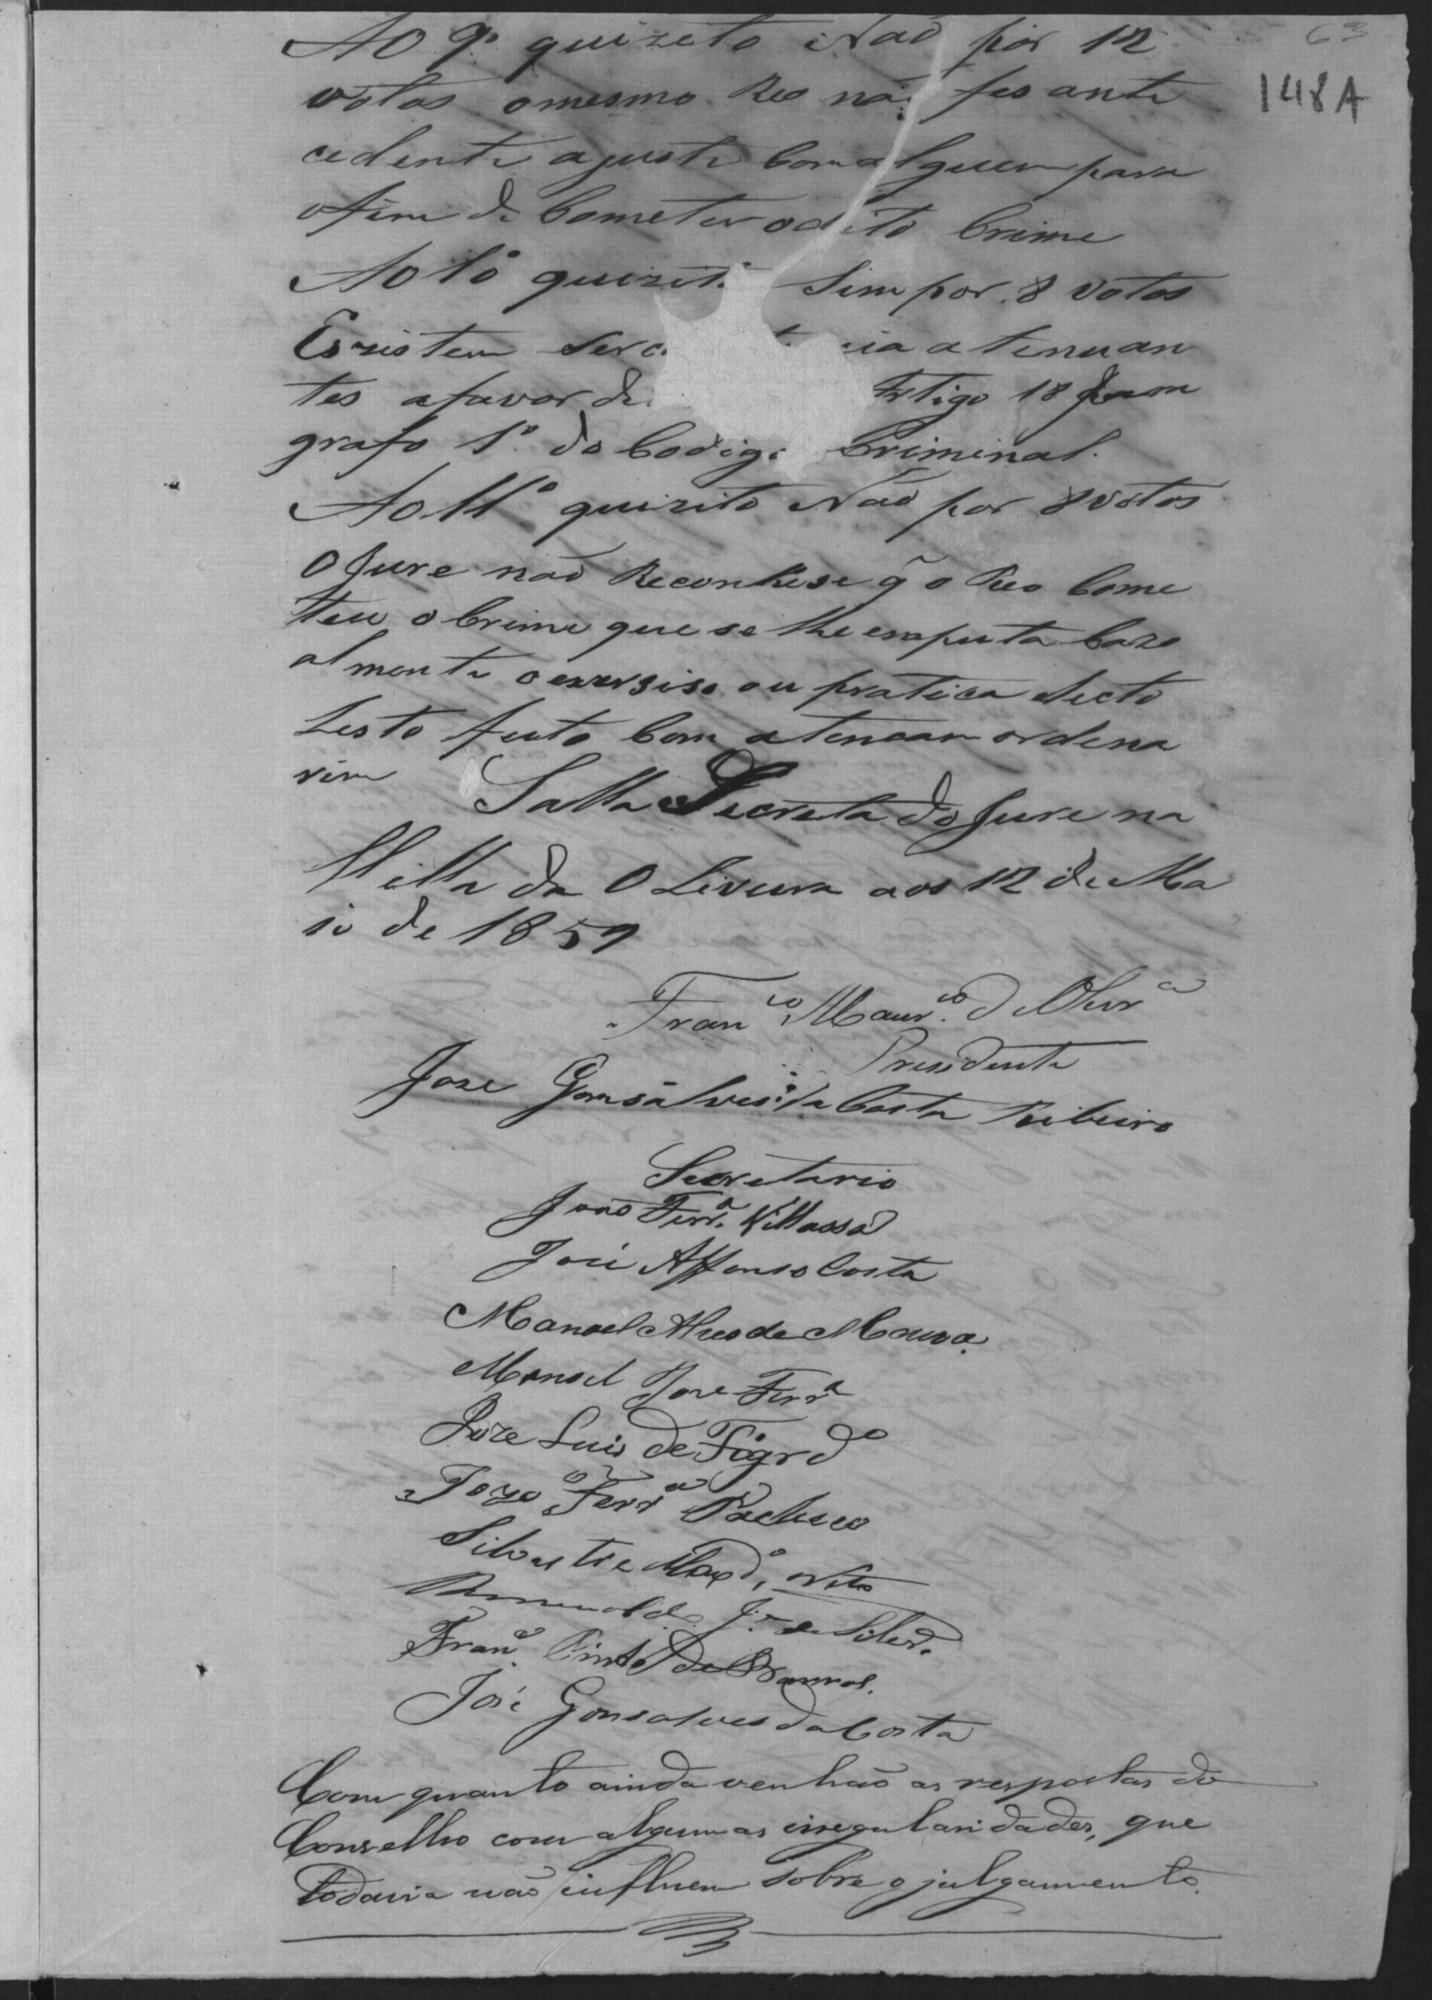 63
148A
Ao 9º quizeto Não por 12
votos o mesmo Reo não fes ante
cedente ajuste Com alguem para
o fim de Cometer o dito Crime
Ao 10º quizit Sim por 8 votos
Existem cia atenuan
tes afavor de Artigo 18 Para
grafo 1º do Codigo Criminal.
Ao 11º quizito Não por 8 votos
O Jure não Reconhese q̃ o Reo Come
teu o Crime que se lhe emputa Cazo
almente o exersiso ou pratica de
feito Com atencam ordena
ria Salla Secreta do Jure na
Villa da Oliveira aos 12 de Ma
io de 1859
Franco Maurco d Olivra
Presidente
Joze Gonsalves da Costa Ribeiro
Secretario
João Ferra Villassa
José Affonso Costa
Manoel Alves de Moura
Manoel Joze Ferra
Joze Luis de Figrdo
Ferra Pacheco
Silvestre Maxdo, Netto
J. da Silvra
Franco Pinto de Barros.
José Gonsalves da Costa
Com quanto ainda venhão as respostas do
Conselho com algumas irregularidades, que
todavia não influem sobre o julgamento.